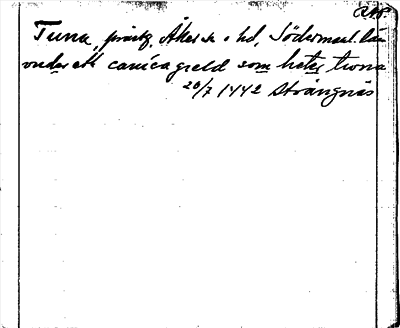 Tuna, prästg. Åkers s. o hd, Söderman. län
vnder ett canica gield som heter twna
20/7 1442 Strängnäs